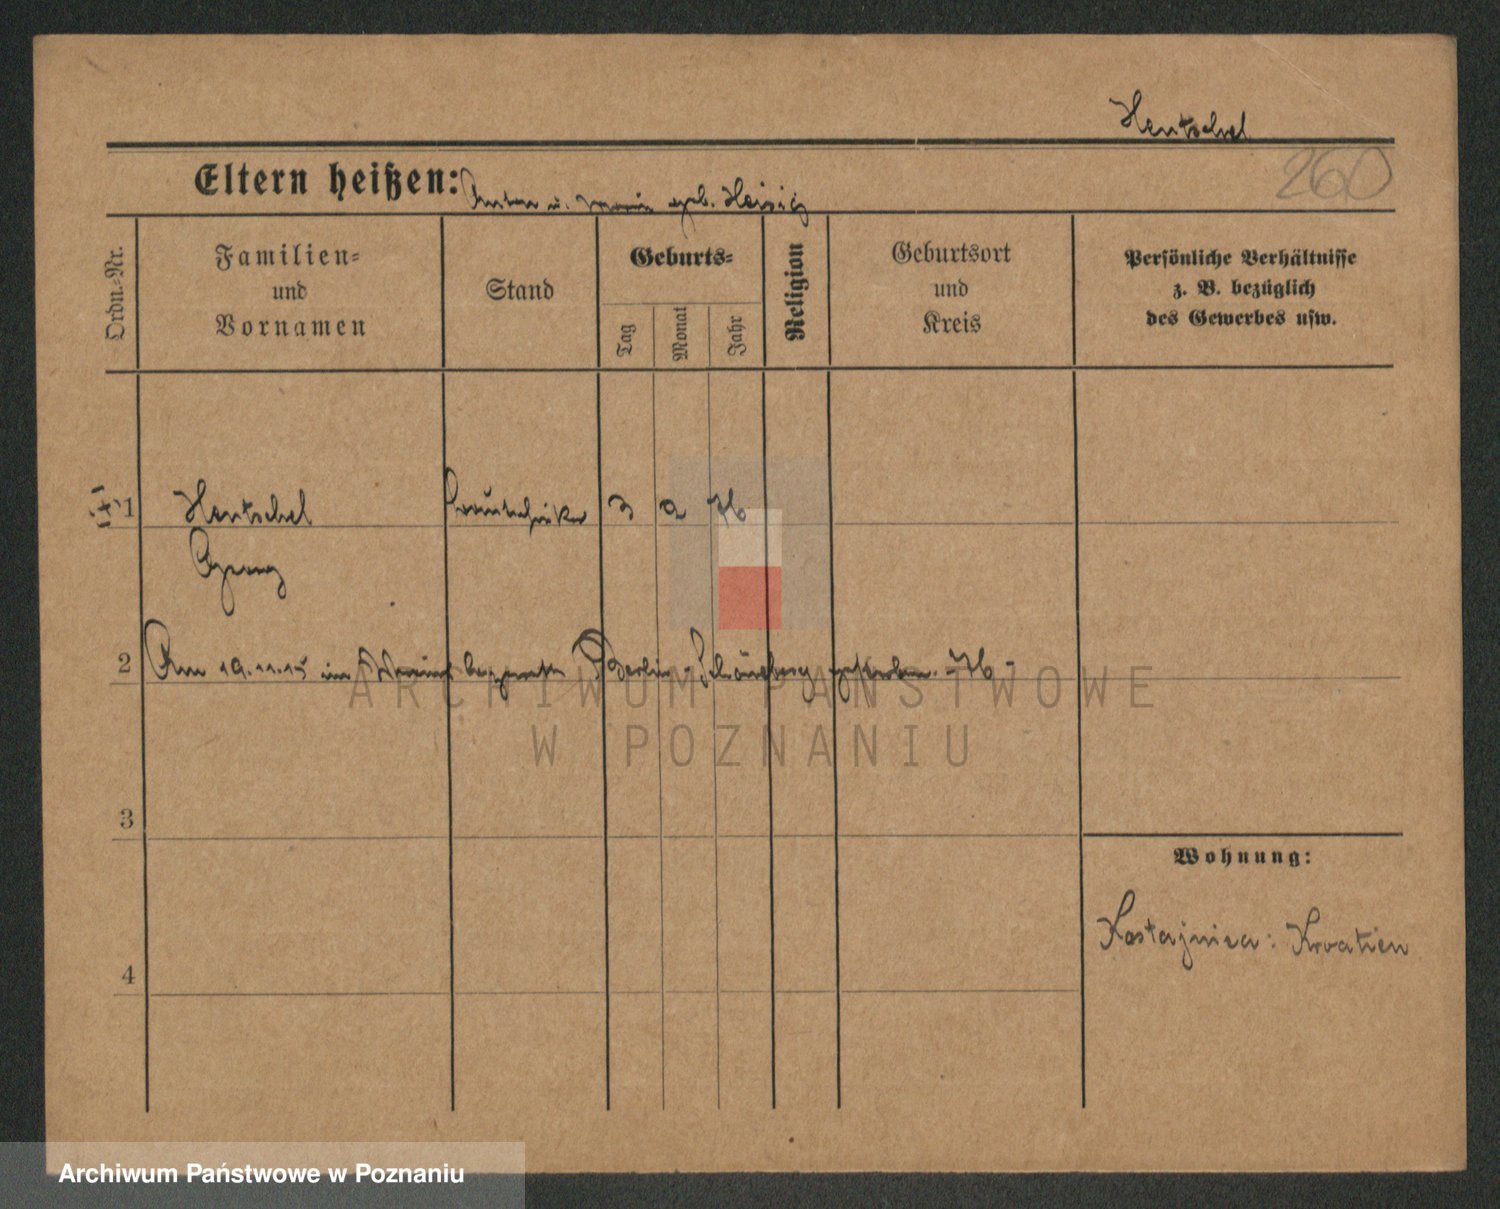 Hentschel
260
Eltern heißen: Anton u. Marie geb. Heisig
Ordn.-Nr.
Familien-
und
Vornamen
Stand
Geburts-
Tag
Monat
Jahr
Religion
Geburtsort
und
Kreis
Persönliche Verhältnisse
z. B. bezüglich
des Gewerbes usw.
1 Hentschel 3 2 76
Georg
2 Am 19.11.15 im Berlin-Schöneberg gestorben. 76
3
4
Wohnung:
Kostajnica: Kroatien
ARCHIWUM PAŃSTWOWE
W POZNANIU
Archiwum Państwowe w Poznaniu